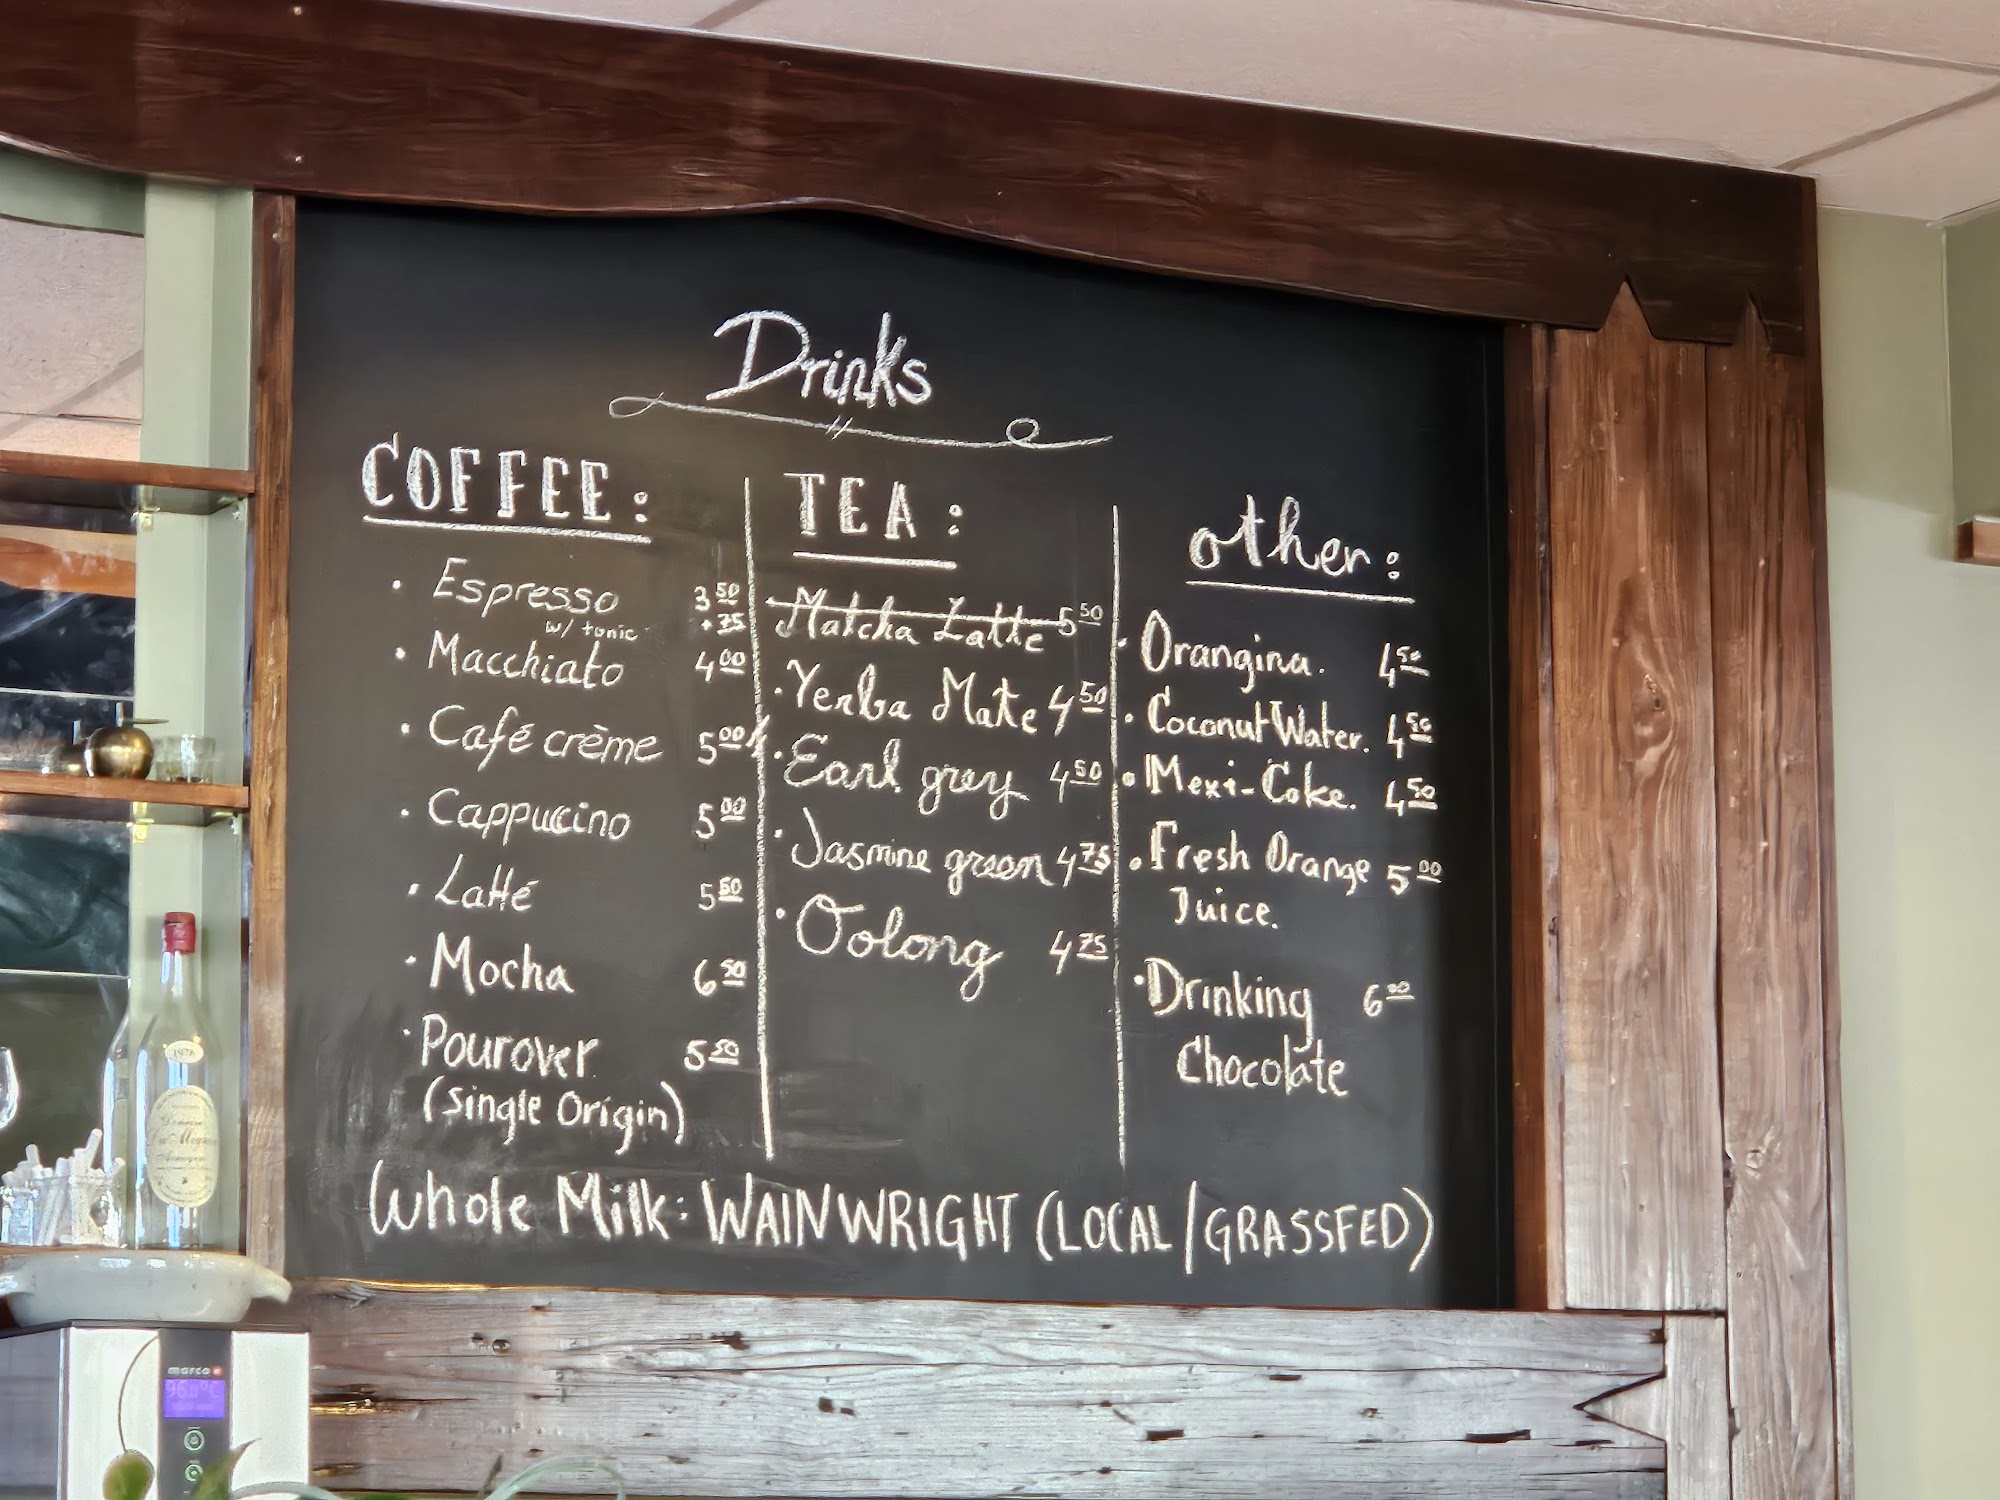 Drinks
COFFEE:
• Espresso 3 50
w/ tonic +75
• Macchiato 4 00
• Café crème 5 00
• Cappuccino 5 00
• Latté 5 50
• Mocha 6 50
• Pourover 5 50
(Single Origin)
TEA:
Matcha Latte 5 50
• Yerba Mate 4 50
• Earl grey 4 50
• Jasmine green 4 75
• Oolong 4 75
other:
• Orangina. 4 50
• Coconut Water. 4 50
• Mexi-Coke. 4 50
• Fresh Orange 5 00
Juice.
• Drinking 6 00
Chocolate
Whole Milk: WAINWRIGHT (LOCAL/GRASSFED)
1976
marco
96.0°C